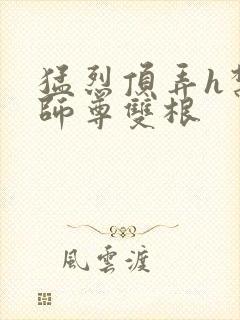 猛烈頂弄h
師尊雙根
風雲渡